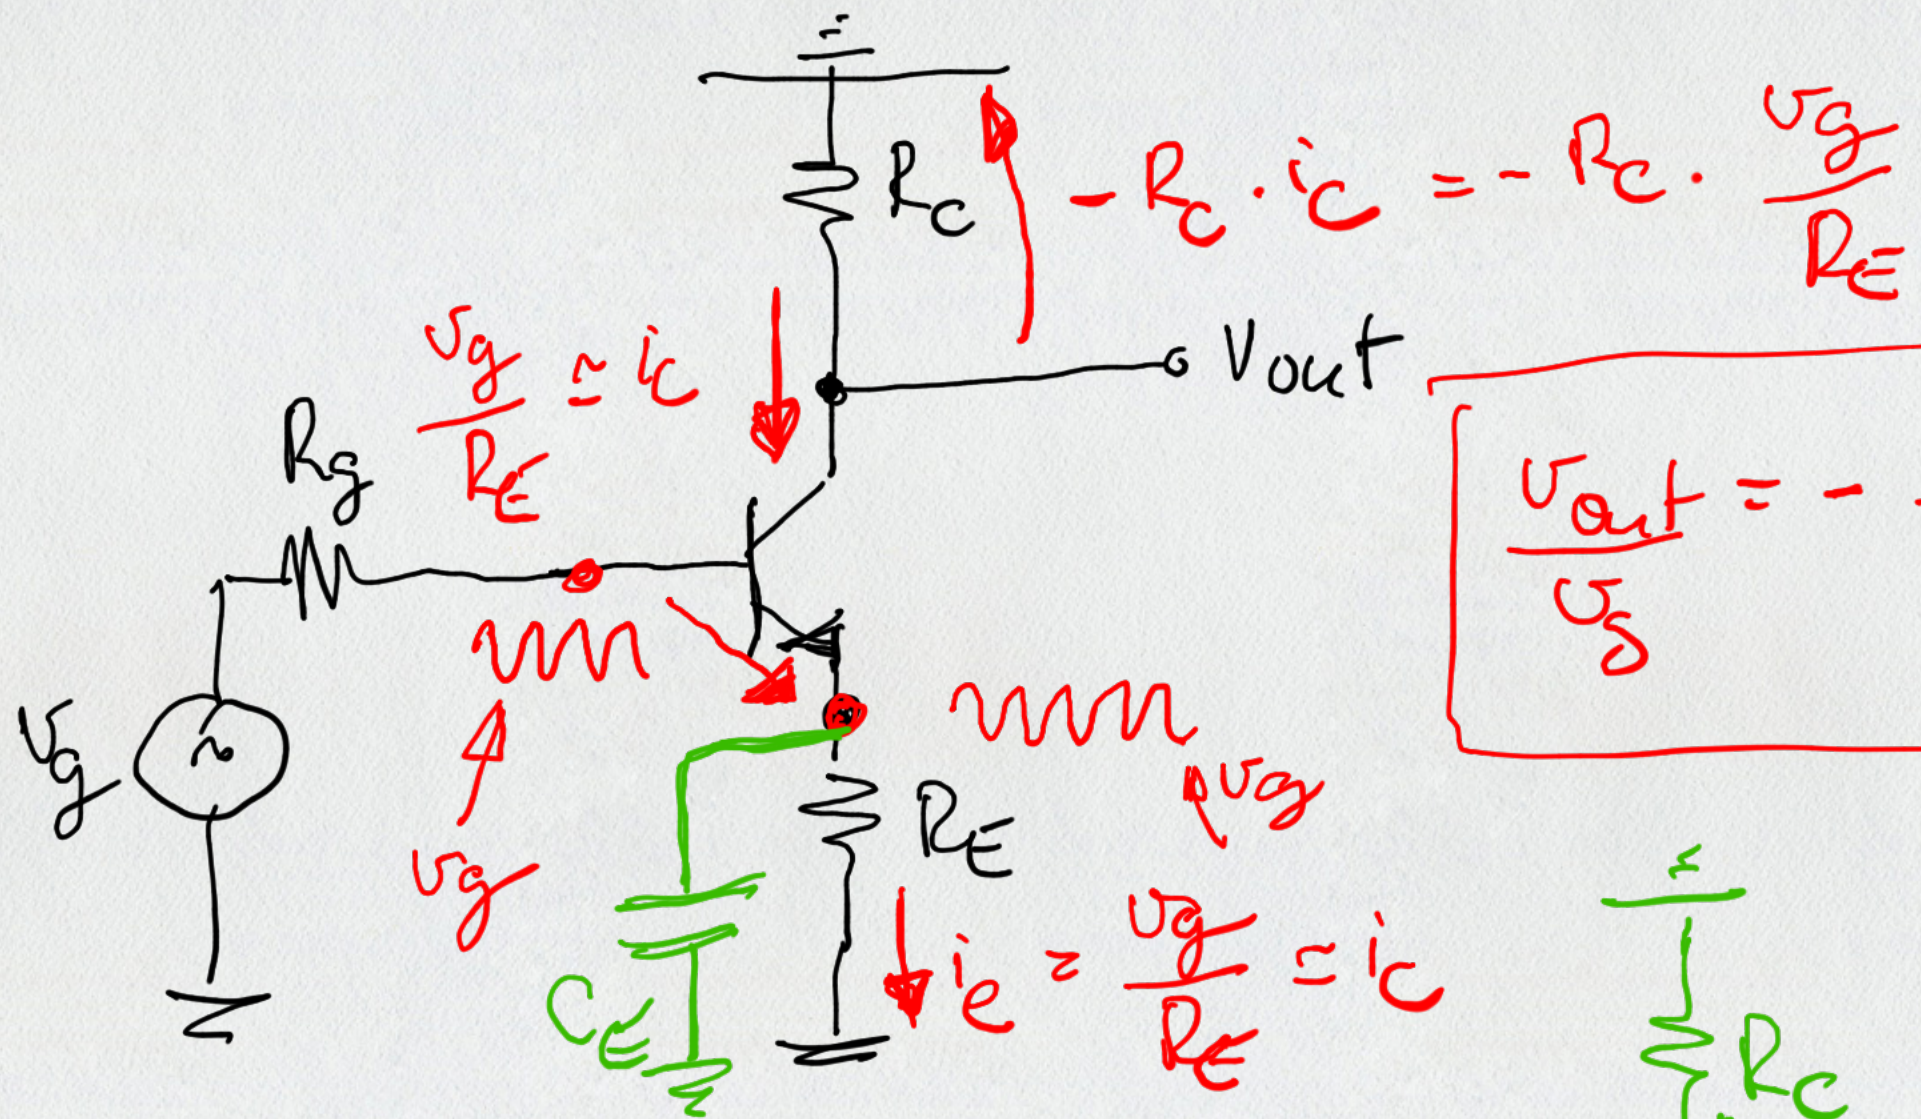 R_C
- R_C · i_C = - R_C · v_g / R_E
v_g / R_E ≃ i_C
V_out
R_g
v_out / v_g = -
V_g
v_g
R_E
v_g
C_E
i_e = v_g / R_E ≃ i_C
R_C